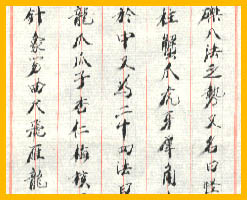 磔八法之勢又名曰怪
柱蟹爪虎牙犀角
於中又為二十四法曰
龍爪瓜子杏仁梅核
針象笏曲尺飛雁龍